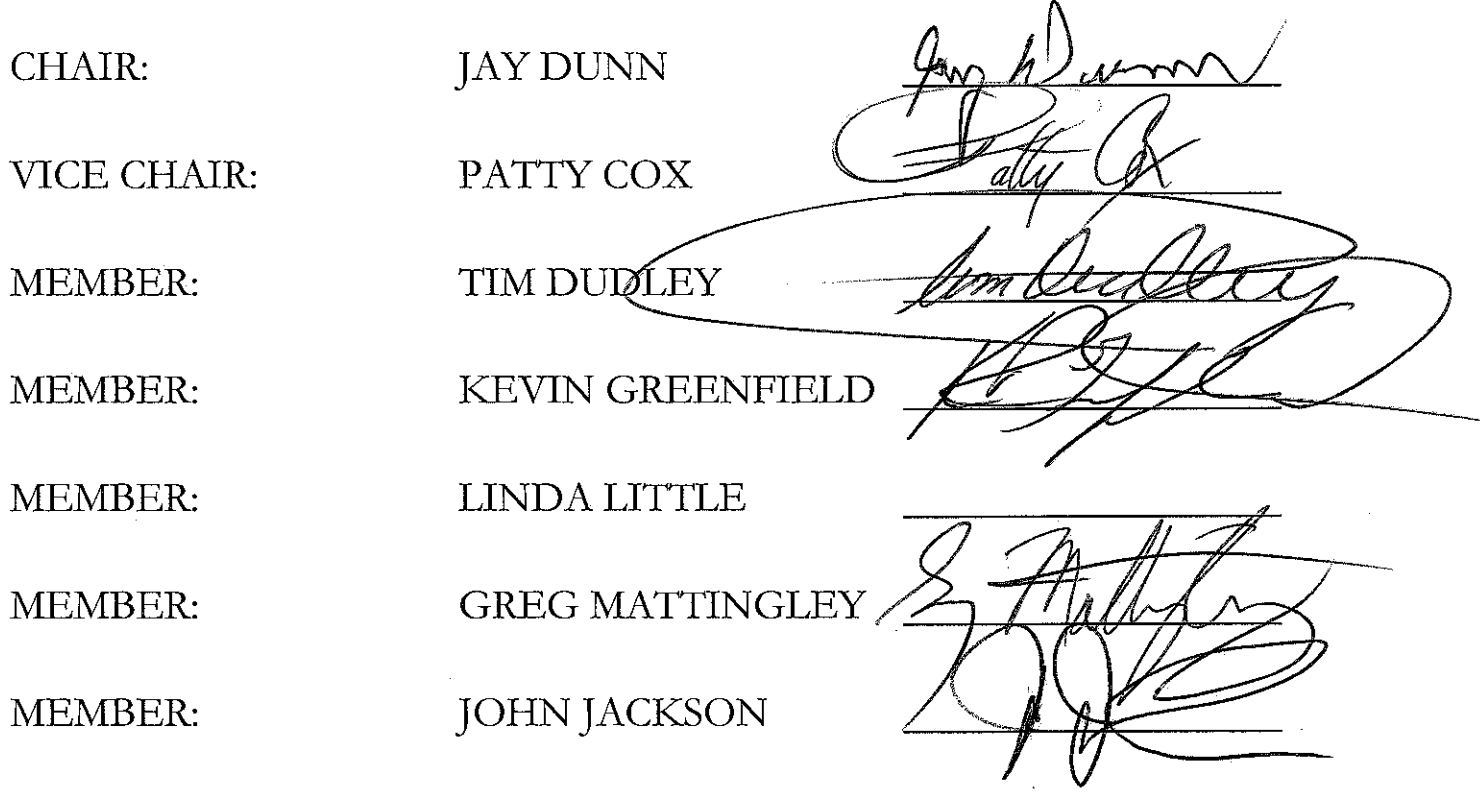 CHAIR: JAY DUNN Jay A Dunn
VICE CHAIR: PATTY COX Patty Cox
MEMBER: TIM DUDLEY Tim Dudley
MEMBER: KEVIN GREENFIELD
MEMBER: LINDA LITTLE
MEMBER: GREG MATTINGLEY
MEMBER: JOHN JACKSON